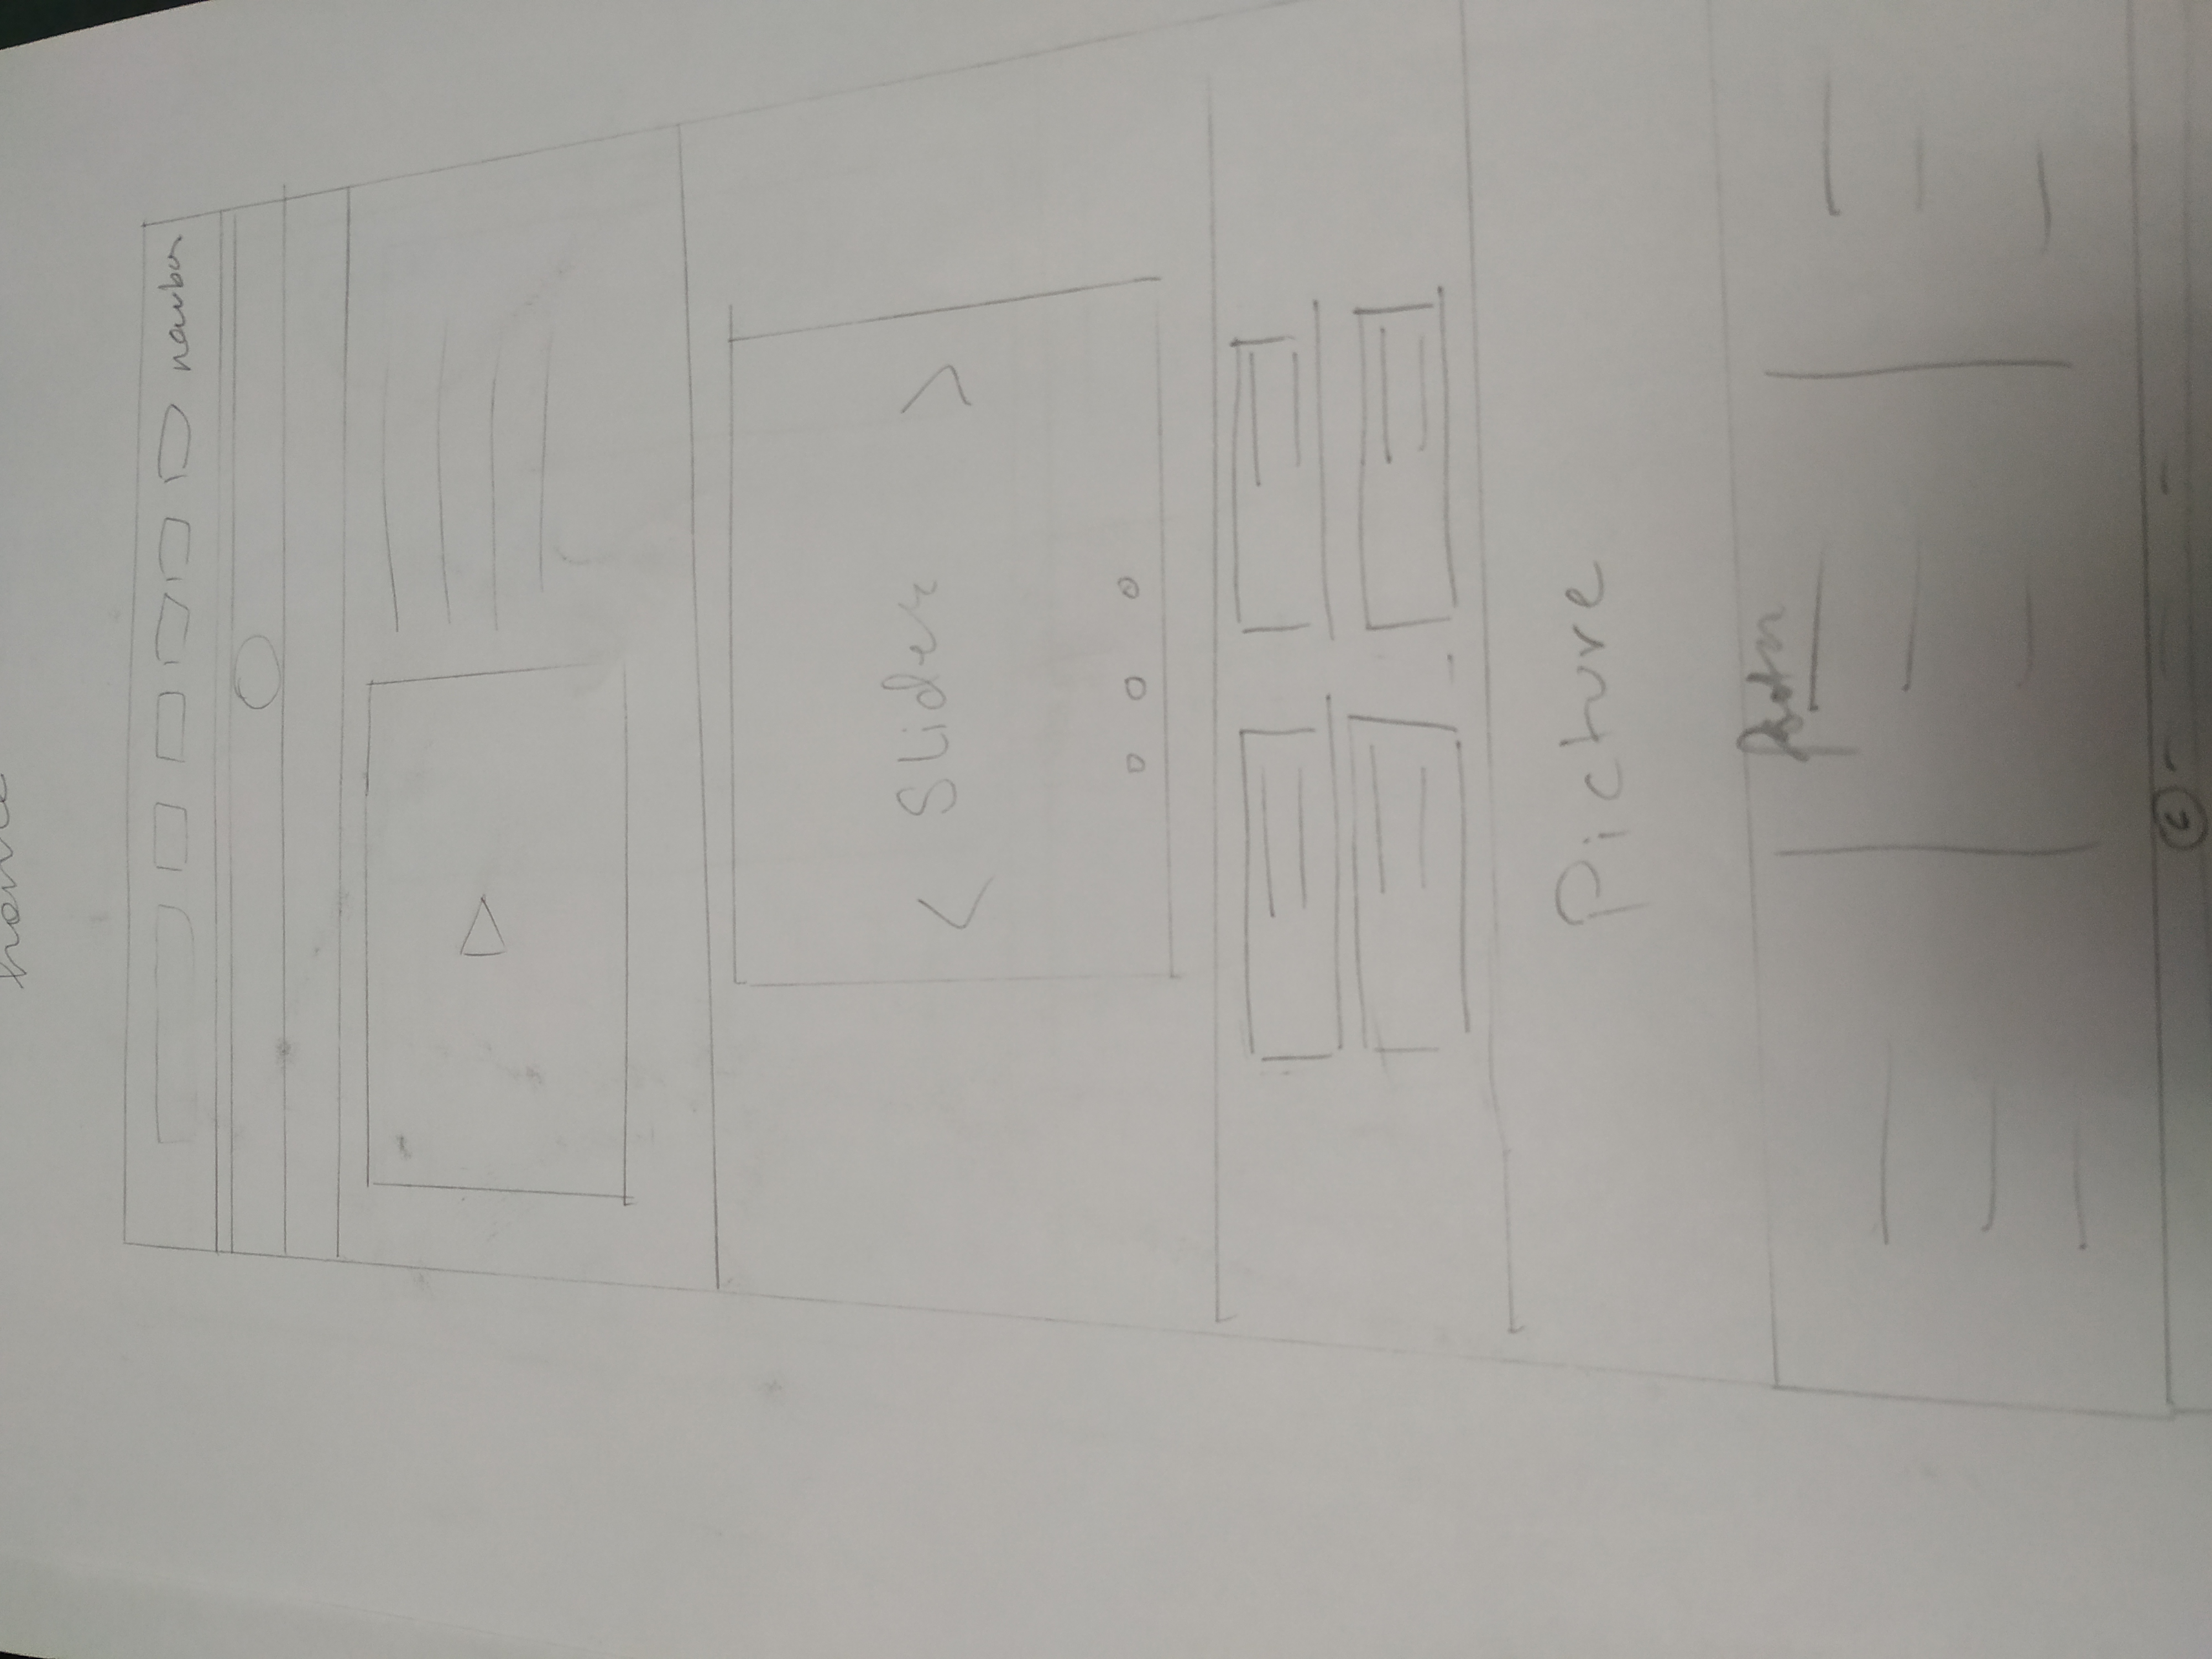 home
navbar
< Slider >
Picture
footer
©